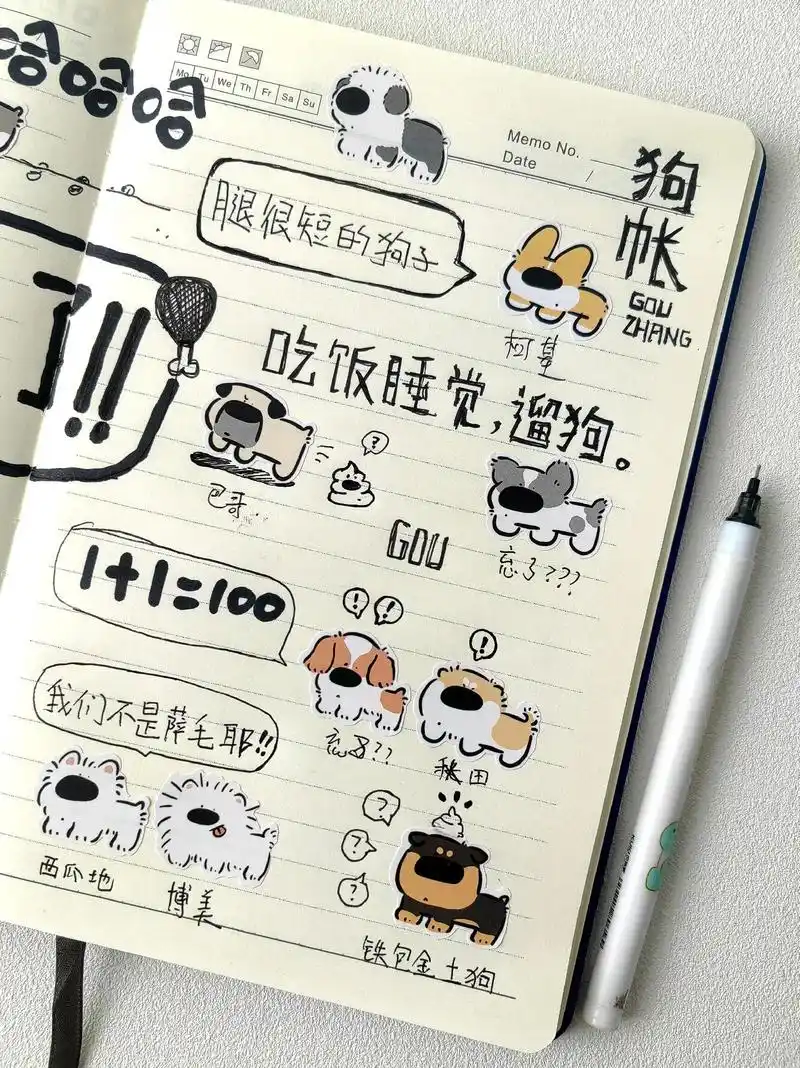 哈哈哈
Mo Tu We Th Fr Sa Su
Memo No.
Date /
狗帐
GOU
ZHANG
腿很短的狗子
柯基
了!!
吃饭睡觉,遛狗。
?
巴哥.
忘了???
GOU
1+1=100
! !
!
忘了??
秋田
我们不是萨毛耶!!
西瓜地
博美
?
?
?
铁包金土狗